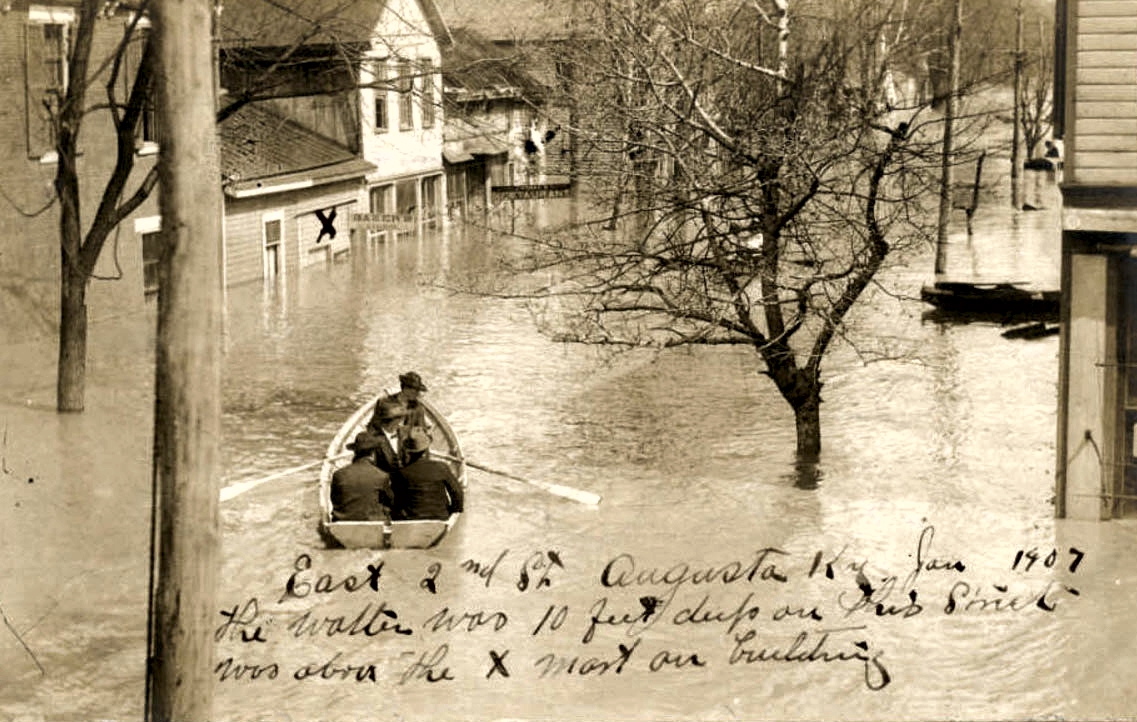 X
BAKERY
East 2nd St Augusta Ky Jan 1907
the watter was 10 feet deep on this Street
was abov the X mark on building